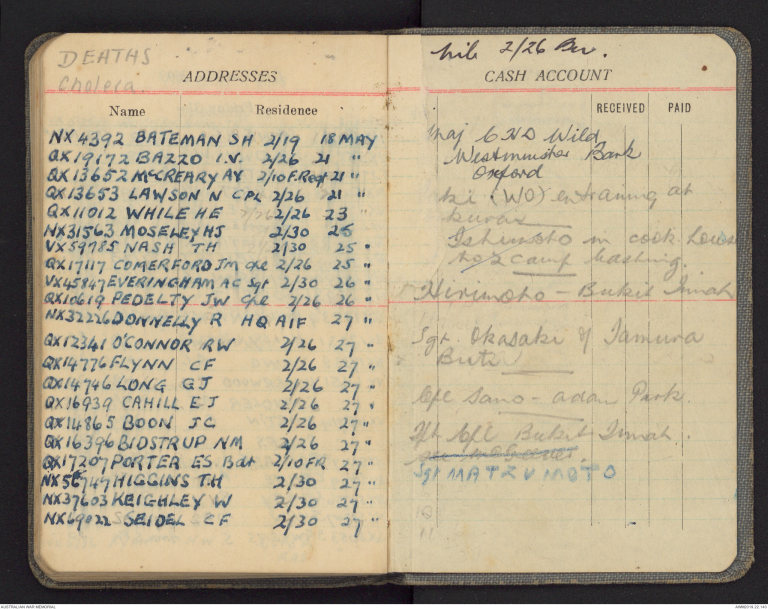 DEATHS
Cholera.
ADDRESSES
Name Residence
NX4392 BATEMAN SH 2/19 18 MAY
QX19172 BAZZO I.V. 2/26 21 "
QX13652 McCREARY AY 2/10 F.Regt 21 "
QX13653 LAWSON N CPL 2/26 21 "
QX11012 WHILE HE 2/26 23 "
NX31563 MOSELEY HJ 2/30 25
VX59785 NASH TH 2/30 25 "
QX17117 COMERFORD JM Cpl 2/26 25 "
VX45847 EVERINGHAM AC Sgt 2/30 26 "
QX10619 PEDELTY JW Cpl 2/26 26 "
NX32226 DONNELLY R HQ AIF 27 "
QX12341 O'CONNOR RW 2/26 27 "
QX14776 FLYNN CF 2/26 27 "
QX14746 LONG GJ 2/26 27 "
QX16939 CAHILL EJ 2/26 27 "
QX14865 BOON JC 2/26 27 "
QX16396 BIDSTRUP NM 2/26 27 "
QX17207 PORTER ES Bdr 2/10 FR 27 "
NX56747 HIGGINS TH 2/30 27 "
NX37603 KEIGHLEY W 2/30 27 "
NX69022 SEIDEL CF 2/30 27 "
2/26 Bn.
CASH ACCOUNT
RECEIVED PAID
Maj C H D Wild
Westminster Bank
Oxford
(WO) entraining at
Ishimoto in cook house
No 2 camp bashing.
Hirimoto - Bukit Timah
Sgt. Okasaki & Tamura
Cpl Sano - adam Park.
Cpl Bukit Timah.
Sgt MATZUMOTO
10
11
AUSTRALIAN WAR MEMORIAL